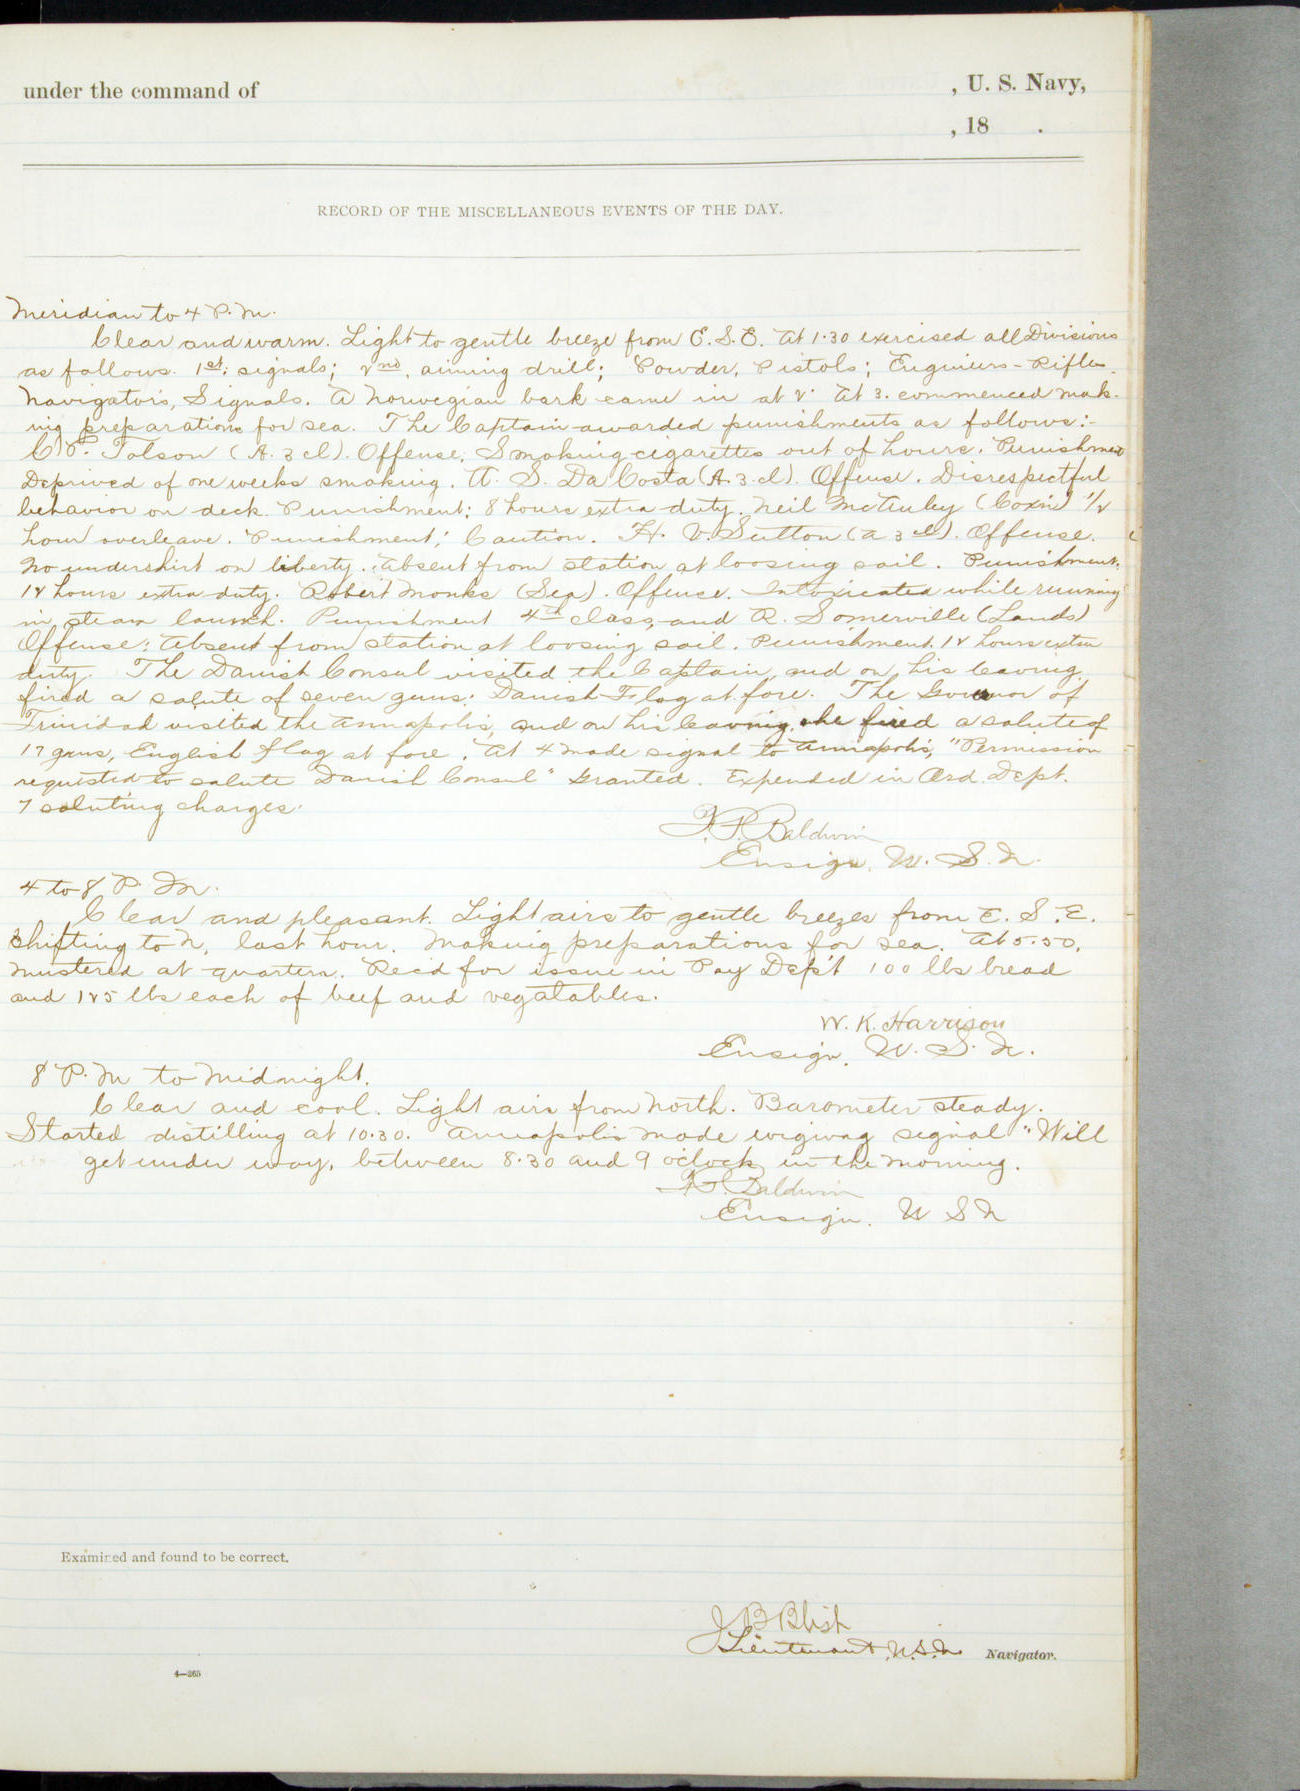 under the command of , U. S. Navy,
, 18 .
RECORD OF THE MISCELLANEOUS EVENTS OF THE DAY.
Meridian to 4 P.M.
Clear and warm. Light to gentle breeze from E.S.E. At 1.30 exercised all Divisions
as follows. 1st; signals; 2nd, aiming drill; Powder, Pistols; Engineers - Rifles
Navigator's, Signals. A Norwegian bark came in at 2. At 3. commenced mak-
ing preparations for sea. The Captain awarded punishments as follows:-
C. P. Tolson (A. 3 cl). Offense, Smoking cigarettes out of hours. Punishment
Deprived of one weeks smoking. A. S. Da Costa (A. 3. cl). Offense. Disrespectful
behavior on deck. Punishment: 8 hours extra duty. Neil McAuley (Coxn) 1/2
hour overleave. Punishment; Caution. H. V. Sutton (A 3 cl). Offense.
No undershirt on liberty. Absent from station at loosing sail. Punishment:
12 hours extra duty. Robert Monks (Sea). Offense. Intoxicated while running
in steam launch. Punishment 4th class, and R. Somerville (Lands)
Offense: Absent from station at loosing sail. Punishment. 12 hours extra
duty. The Danish Consul visited the Captain, and on his leaving
fired a salute of seven guns: Danish Flag at fore. The Governor of
Trinidad visited the Annapolis, and on his leaving, she fired a salute of
17 guns, English flag at fore. At 4 made signal to Annapolis, "Permission
requested to salute Danish Consul" Granted. Expended in Ord. Dept.
7 saluting charges.
F.P. Baldwin
Ensign, U. S. N.
4 to 8 P. M.
Clear and pleasant. Light airs to gentle breezes from E. S. E.
shifting to N, last hour. Making preparations for sea. At 5.50,
mustered at quarters. Rec'd for issue in Pay Dep't 100 lbs bread
and 125 lbs each of beef and vegatables.
W. K. Harrison
Ensign, U. S. N.
8 P. M to Midnight.
Clear and cool. Light airs from North. Barometer steady.
Started distilling at 10.30. Annapolis made wigwag signal "Will
get under way, between 8.30 and 9 o'clock, in the morning.
F.P. Baldwin
Ensign. U S N
Examined and found to be correct.
J B Blish
Lieutenant, U.S.N Navigator.
4—265